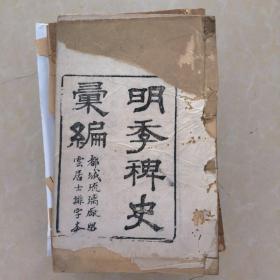 明季稗史
彙編
都城琉璃厰留
雲居士排字本